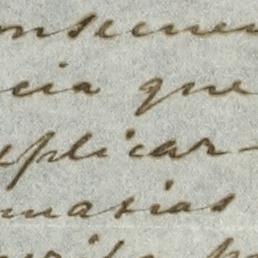 onsecuen
cia que
uplicar-
masias